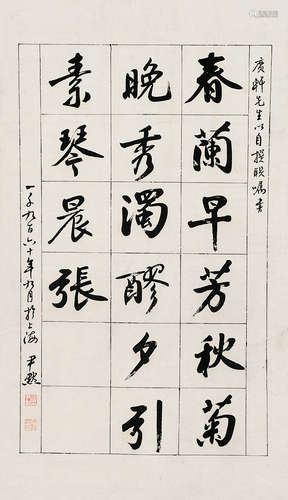 廣軒先生以自撰聯囑書
春蘭早芳秋菊
晚秀濁醪夕引
素琴晨張
一千九百六十年九月於上海 尹默